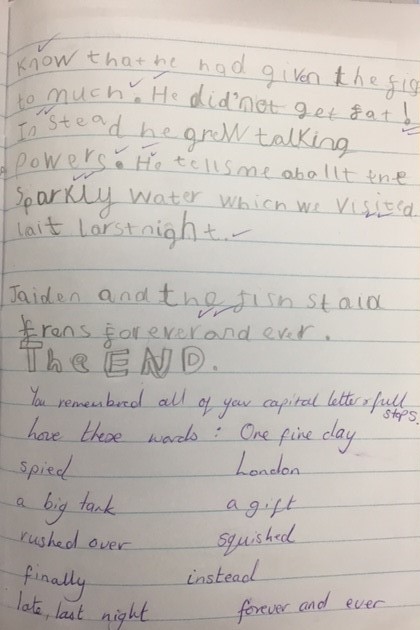 know that he had given the fig
to much. He did'not get fat!
In stead he grew talking
Powers. He tells me aballt the
Sparkly water which we visited
lait larst night.
Jaiden and the fish staid
frens forever and ever.
The END.
You remembered all of your capital letters + full
stops.
love these words : One fine day
spied London
a big tank a gift
rushed over squished
finally instead
late, last night forever and ever